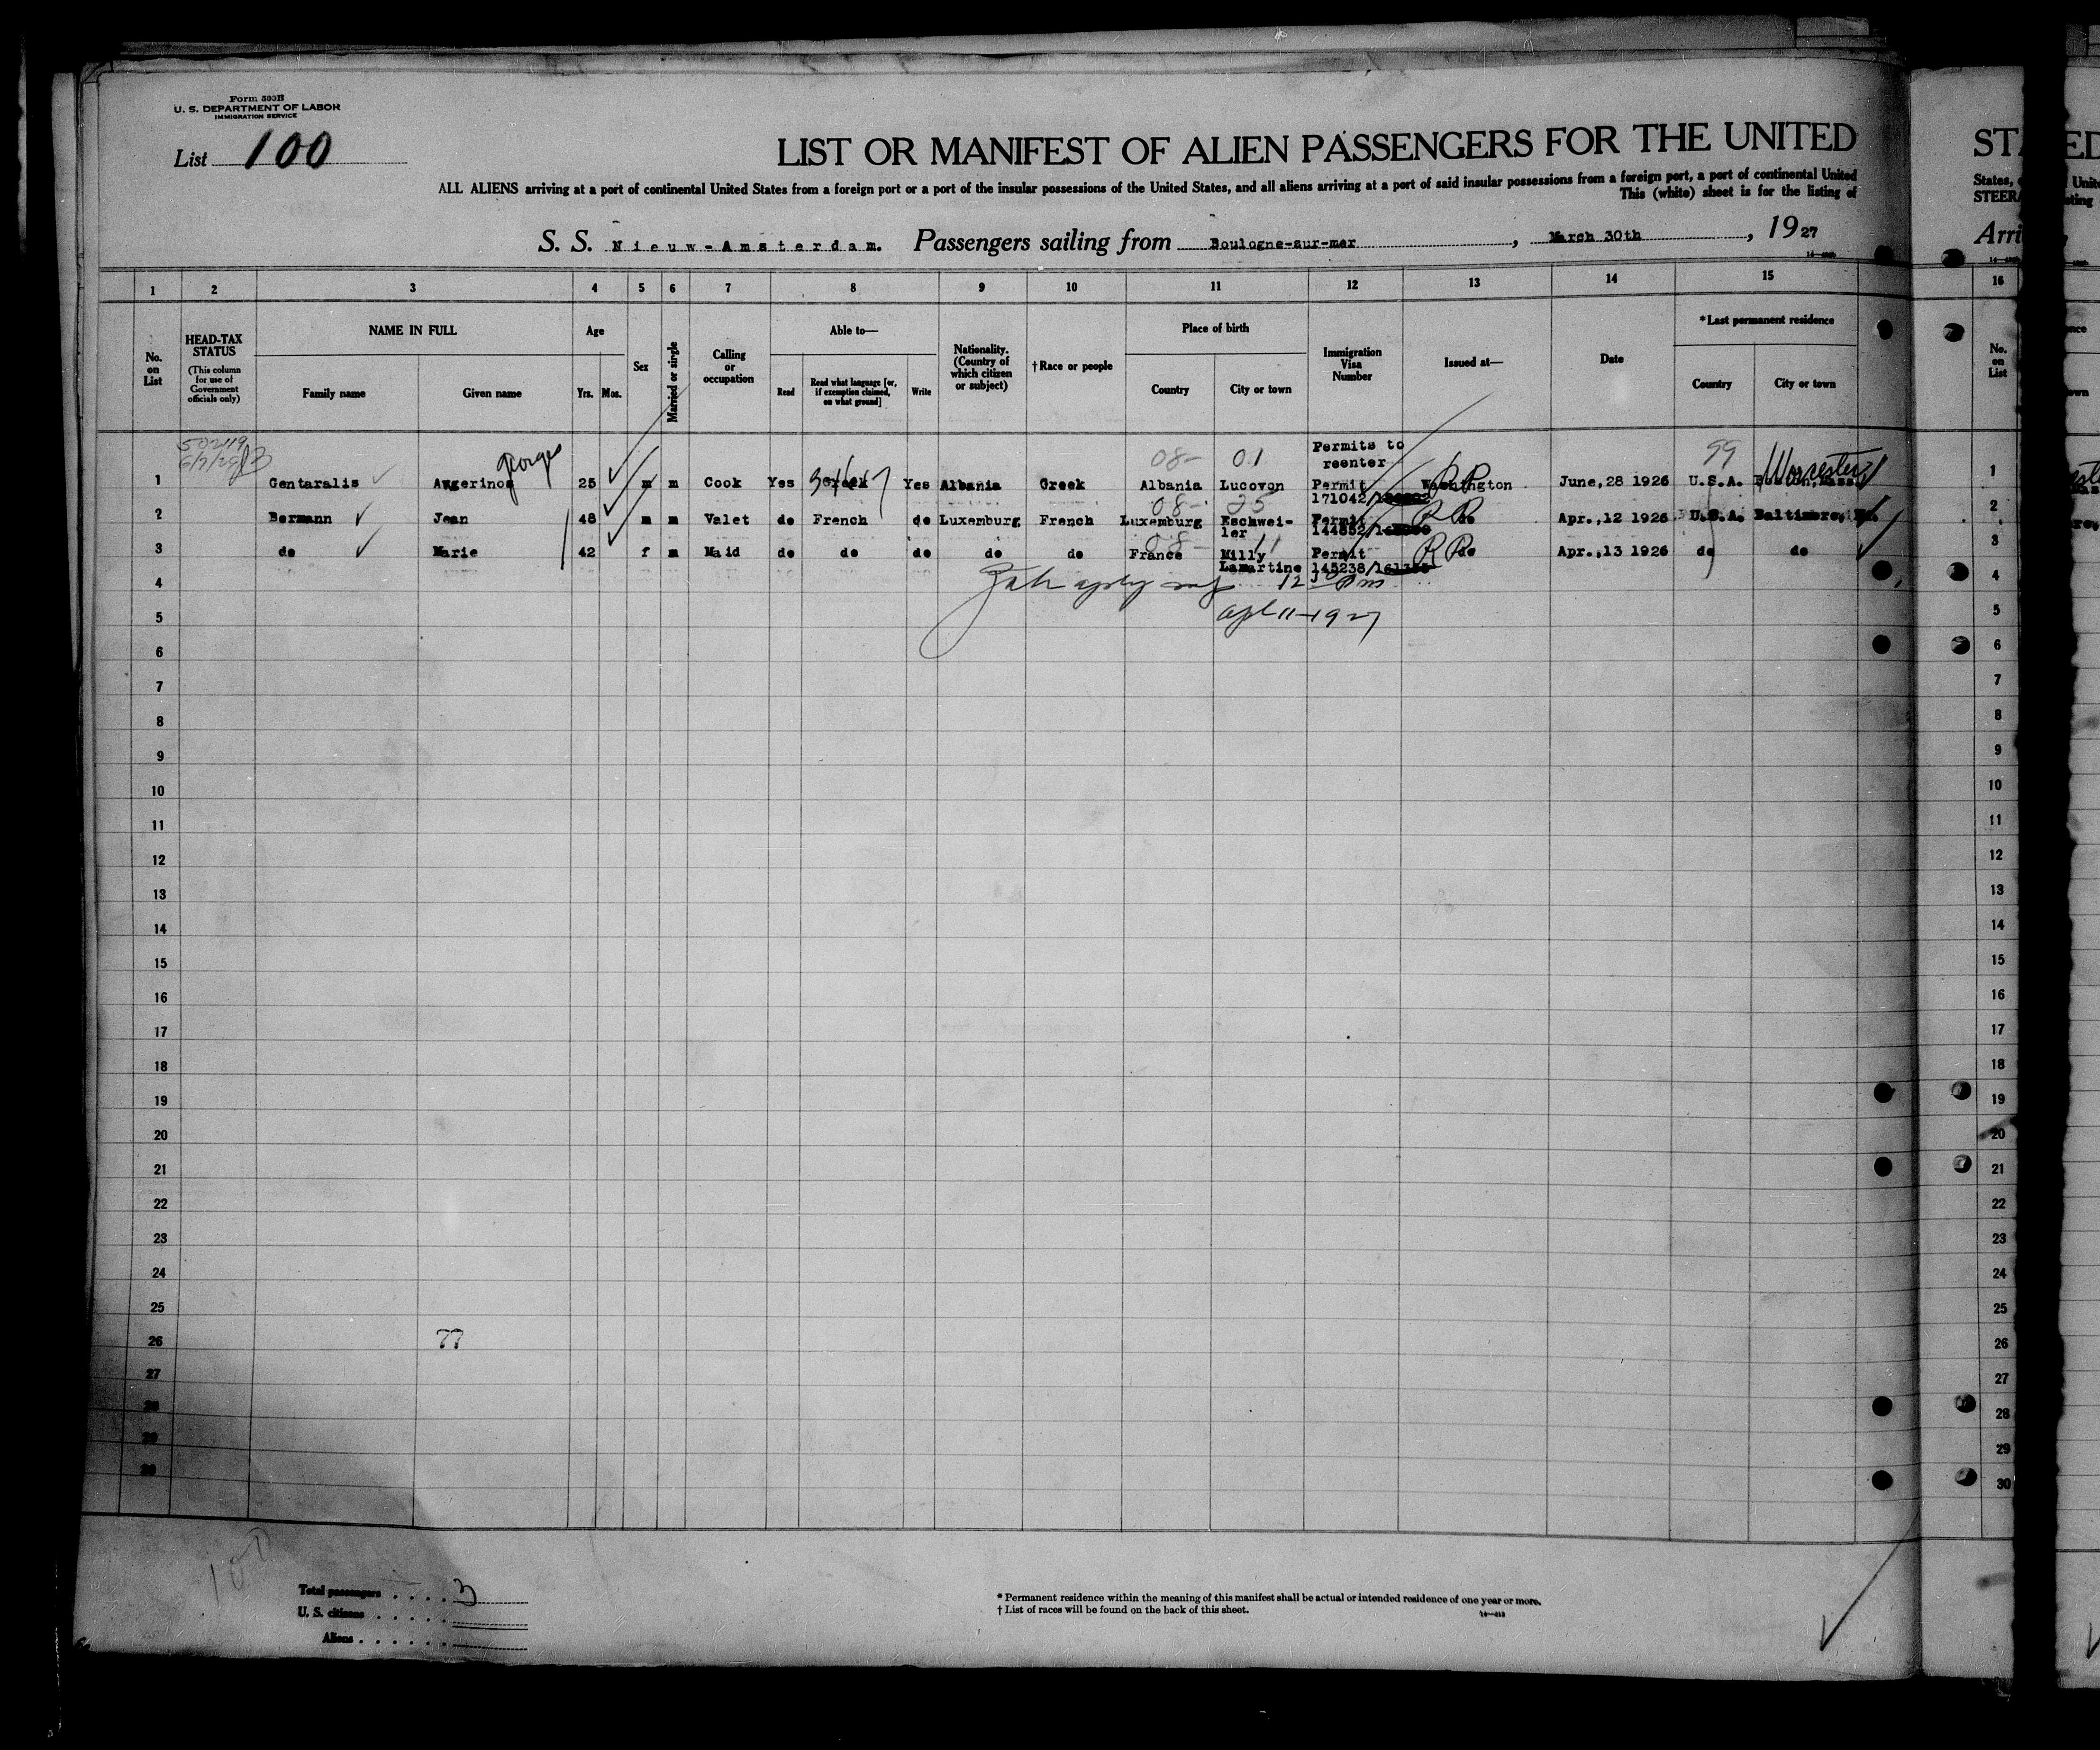 Form 500B
U. S. DEPARTMENT OF LABOR
IMMIGRATION SERVICE
List 100
LIST OR MANIFEST OF ALIEN PASSENGERS FOR THE UNITED
ALL ALIENS arriving at a port of continental United States from a foreign port or a port of the insular possessions of the United States, and all aliens arriving at a port of said insular possessions from a foreign port, a port of continental United
This (white) sheet is for the listing of
S. S. Nieuw-Amsterdam. Passengers sailing from Boulogne-sur-mer, March 30th, 1927
1 2 3 4 5 6 7 8 9 10 11 12 13 14 15
No. on List
HEAD-TAX STATUS
(This column for use of Government officials only)
NAME IN FULL
Family name Given name
Age
Yrs. Mos.
Sex
Married or single
Calling or occupation
Able to—
Read Read what language [or, if exemption claimed, on what ground] Write
Nationality. (Country of which citizen or subject)
† Race or people
Place of birth
Country City or town
Immigration Visa Number
Issued at—
Date
* Last permanent residence
Country City or town
georges 08- 01 Permits to reenter 99 Worcester
1 Gentaralis Augerinos 25 m m Cook Yes Greek Yes Albania Greek Albania Lucovon Permit 171042/ Washington June,28 1926 U.S.A.
08- 25
2 Bermann Jean 48 m m Valet do French do Luxemburg French Luxemburg Eschwei-ler Permit 144852/ do Apr.,12 1926 U.S.A. Baltimore,
08- 11
3 do Marie 42 f m Maid do do do do do France Milly Lamartine Permit 145238/ do Apr.,13 1926 do do
4 12
5 Apl 11-1927
6
7
8
9
10
11
12
13
14
15
16
17
18
19
20
21
22
23
24
25
26 77
27
28
29
30
100
Total passengers . . . . 3
U. S. citizens . . . . .
Aliens . . . . . .
* Permanent residence within the meaning of this manifest shall be actual or intended residence of one year or more.
† List of races will be found on the back of this sheet.
States,
STEER
Arri
16
No. on List
1
2
3
4
5
6
7
8
9
10
11
12
13
14
15
16
17
18
19
20
21
22
23
24
25
26
27
28
29
30